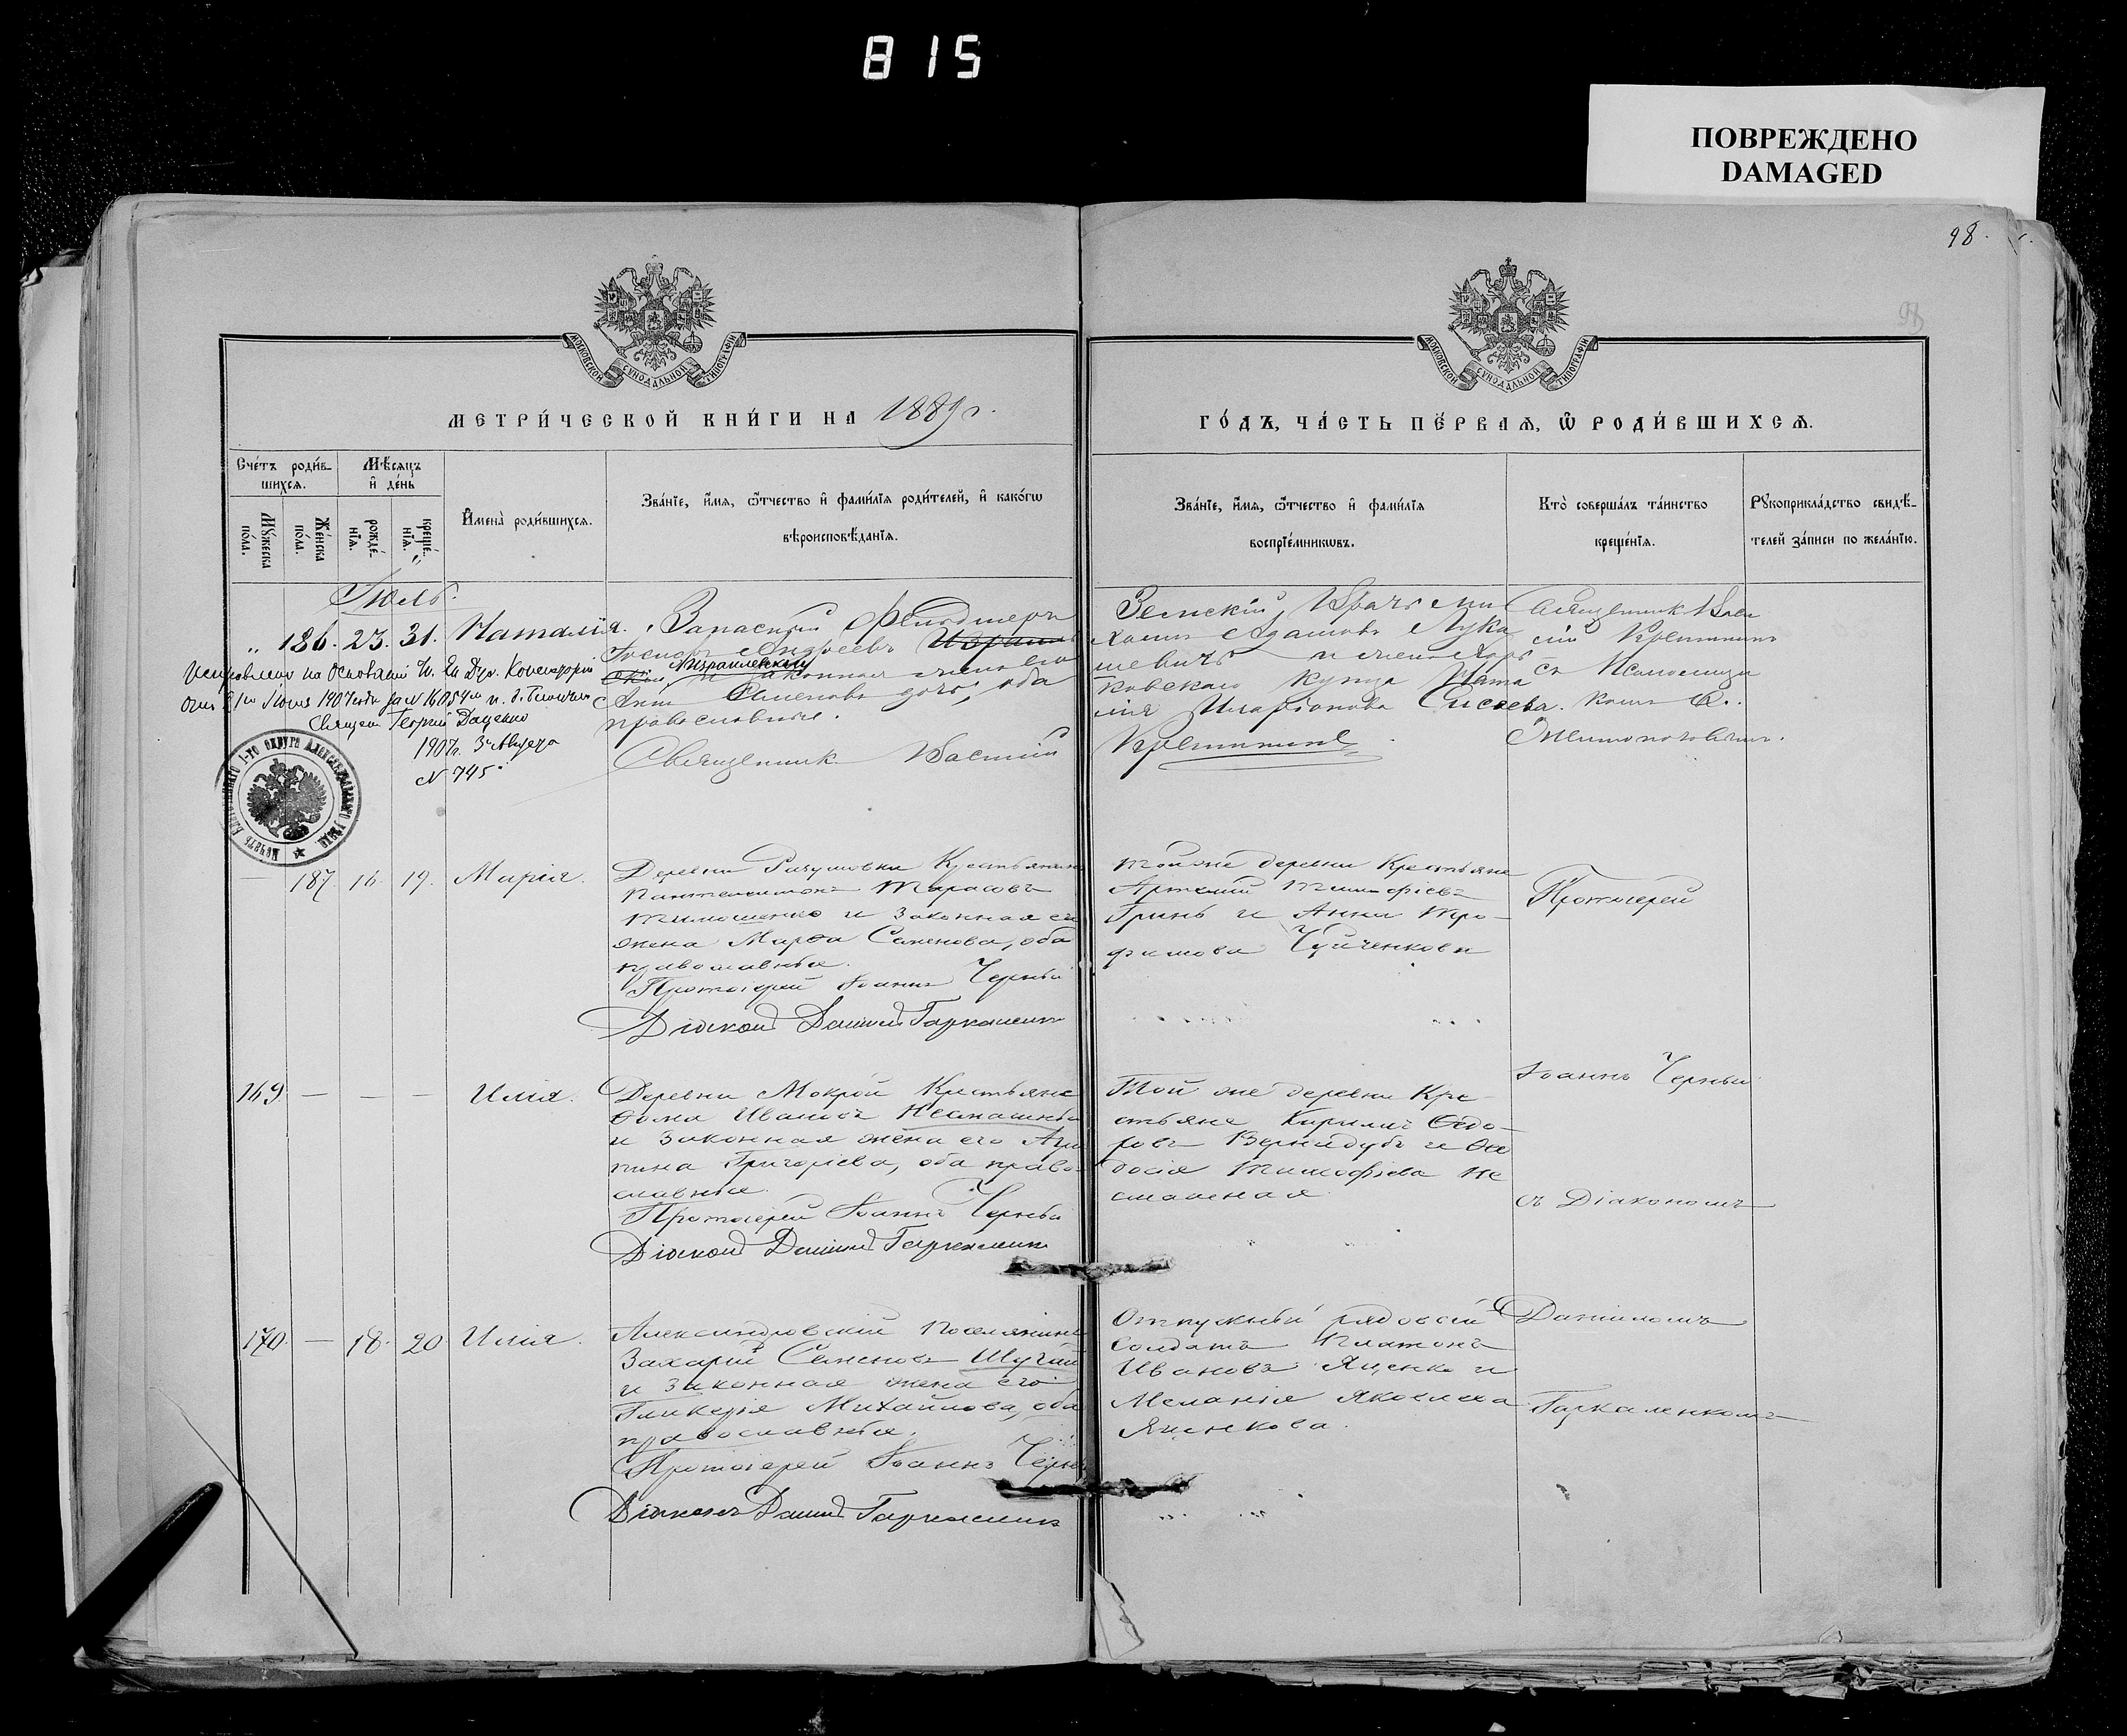 815
ПОВРЕЖДЕНО
DAMAGED
98.
98
МОСКОВСКОЙ СѴНОДАЛЬНОЙ ТИПОГРАФІИ
МОСКОВСКОЙ СѴНОДАЛЬНОЙ ТИПОГРАФІИ
МЕТРИ́ЧЕСКОЙ КНИ́ГИ НА 1889 г.
ГО́ДЪ, ЧА́СТЬ ПЕ́РВАѦ, Ѽ РОДИ́ВШИХСѦ.
Сче́тъ роди́в-
шихсѧ.
Мѣ́сѧцъ
и҆ де́нь
Мꙋ́жеска по́ла.
Же́нска по́ла.
рожде́-
нїѧ.
креще́-
нїѧ.
И҆мена̀ роди́вшихсѧ.
Зва́нїе, и҆́мѧ, ѻ҆́тчество и҆ фами́лїѧ роди́телей, и҆ како́гѡ
вѣроисповѣ́данїѧ.
Зва́нїе, и҆́мѧ, ѻ҆́тчество и҆ фами́лїѧ
воспрїе́мникѡвъ.
Кто̀ соверша́лъ та́инство
креще́нїѧ.
Рꙋкоприкла́дство свидѣ́-
телей за́писи по жела́нїю.
Іюль.
„ 186. 23. 31. Наталія.
Запасный Фельдшеръ
Андреевъ
Израилевскій
и законная жена его
Семенова дочь, оба
православные.
Священникъ Василій
Земскій Врачъ
Адамовъ Лука
шевичъ и жена Харь
ковскаго купца Ната
лія Иларіонова Сисоева.
Священникъ Васи
лій
съ Псаломщи
комъ
Исправлено на Основаніи Ук. Ек. Дух. Консисторіи
отъ Іюля 1907 года за № 16054
Священ. Георгій Даценко
1907 г. 3 Августа
№ 745.
ПЕЧАТЬ БЛАГОЧИННАГО 1-ГО ОКРУГА АЛЕКСАНДРОВСКАГО УѢЗДА
— 187. 16. 19. Марія.
Деревни Разумовки Крестьянинъ
Пантелеимонъ Тарасовъ
Тимошенко и законная его
жена Марѳа Семенова, оба
православные.
Протоіерей Іоаннъ Черный
Діаконъ Даніилъ Гаркаленко
Той же деревни Крестьяне
Артемій Тимофіевъ
Гринь и Анна Тро-
фимова Чуйченкова
Протоіерей
169. — — — Илія.
Деревни Мокрой Крестьяне
Ѳома Ивановъ Несмашный
и законная жена его Агри
пина Григоріева, оба право-
славные.
Протоіерей Іоаннъ Черный
Діаконъ Даніилъ Гаркаленко
Той же деревни Кре-
стьяне Кирилъ Ѳедо-
ровъ Вернидубъ и Ѳео
досія Тимофіева Не
смашная
Іоаннъ Черный
съ Діакономъ
170. — 18. 20 Илія.
Александровскій Поселянинъ
Захарій Семеновъ Шугай
и законная жена его
Гликерія Михайлова, оба
православные.
Протоіерей Іоаннъ Черный
Діаконъ Даніилъ Гаркаленко
Отпускный рядовой
солдатъ Платонъ
Ивановъ Яценко и
Меланія Яковлева
Яценкова.
Даніиломъ
Гаркаленкомъ